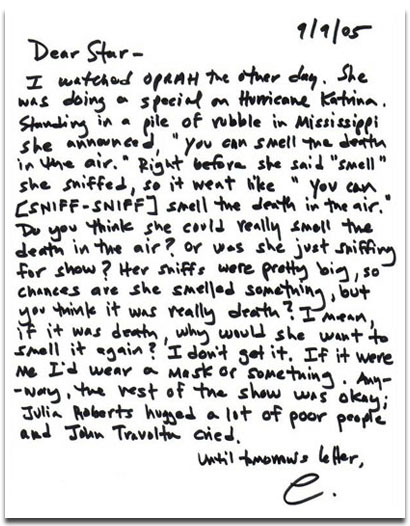 9/9/05
Dear Star-
I watched OPRAH the other day. She
was doing a special on Hurricane Katrina.
Standing in a pile of rubble in Mississippi
she announced, "you can smell the death
in the air." Right before she said "smell"
she sniffed, so it went like "you can
[SNIFF-SNIFF] smell the death in the air."
Do you think she could really smell the
death in the air? Or was she just sniffing
for show? Her sniffs were pretty big, so
chances are she smelled something, but
you think it was really death? I mean,
if it was death, why would she want to
smell it again? I don't get it. If it were
me I'd wear a mask or something. Any-
-way, the rest of the show was okay;
Julia Roberts hugged a lot of poor people
and John Travolta cried.
Until tomorrow's letter,
C.